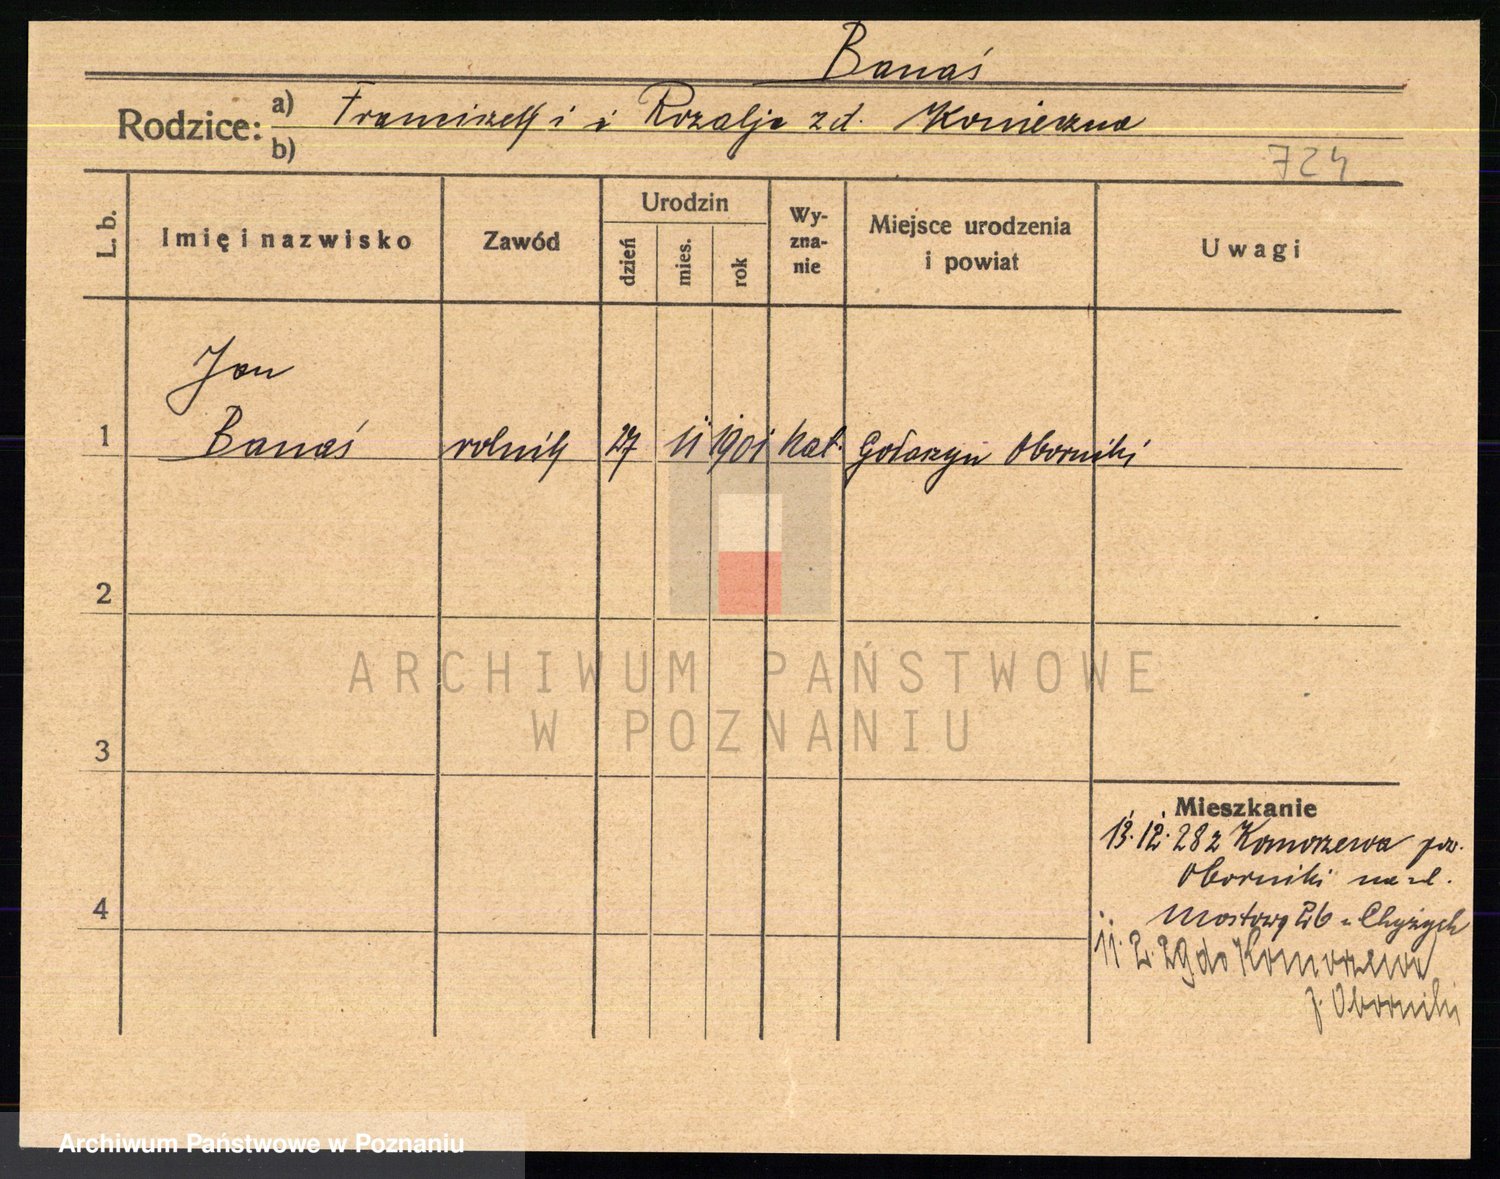 Banaś
Rodzice: a) Franciszek i Rozalja zd. Konieczna
b)
724
L. b.
Imię i nazwisko
Zawód
Urodzin
dzień
mies.
rok
Wy-
zna-
nie
Miejsce urodzenia
i powiat
Uwagi
Jan
1 Banaś rolnik 27 11 1901 kat. Gołaszyn Oborniki
2
ARCHIWUM PAŃSTWOWE
W POZNANIU
3
Mieszkanie
13.12.28 z Komorzewa pow.
Oborniki na ul.
4
Mostową 26 u Chyżych
11.2.29 do Komorzewa
p. Oborniki
Archiwum Państwowe w Poznaniu